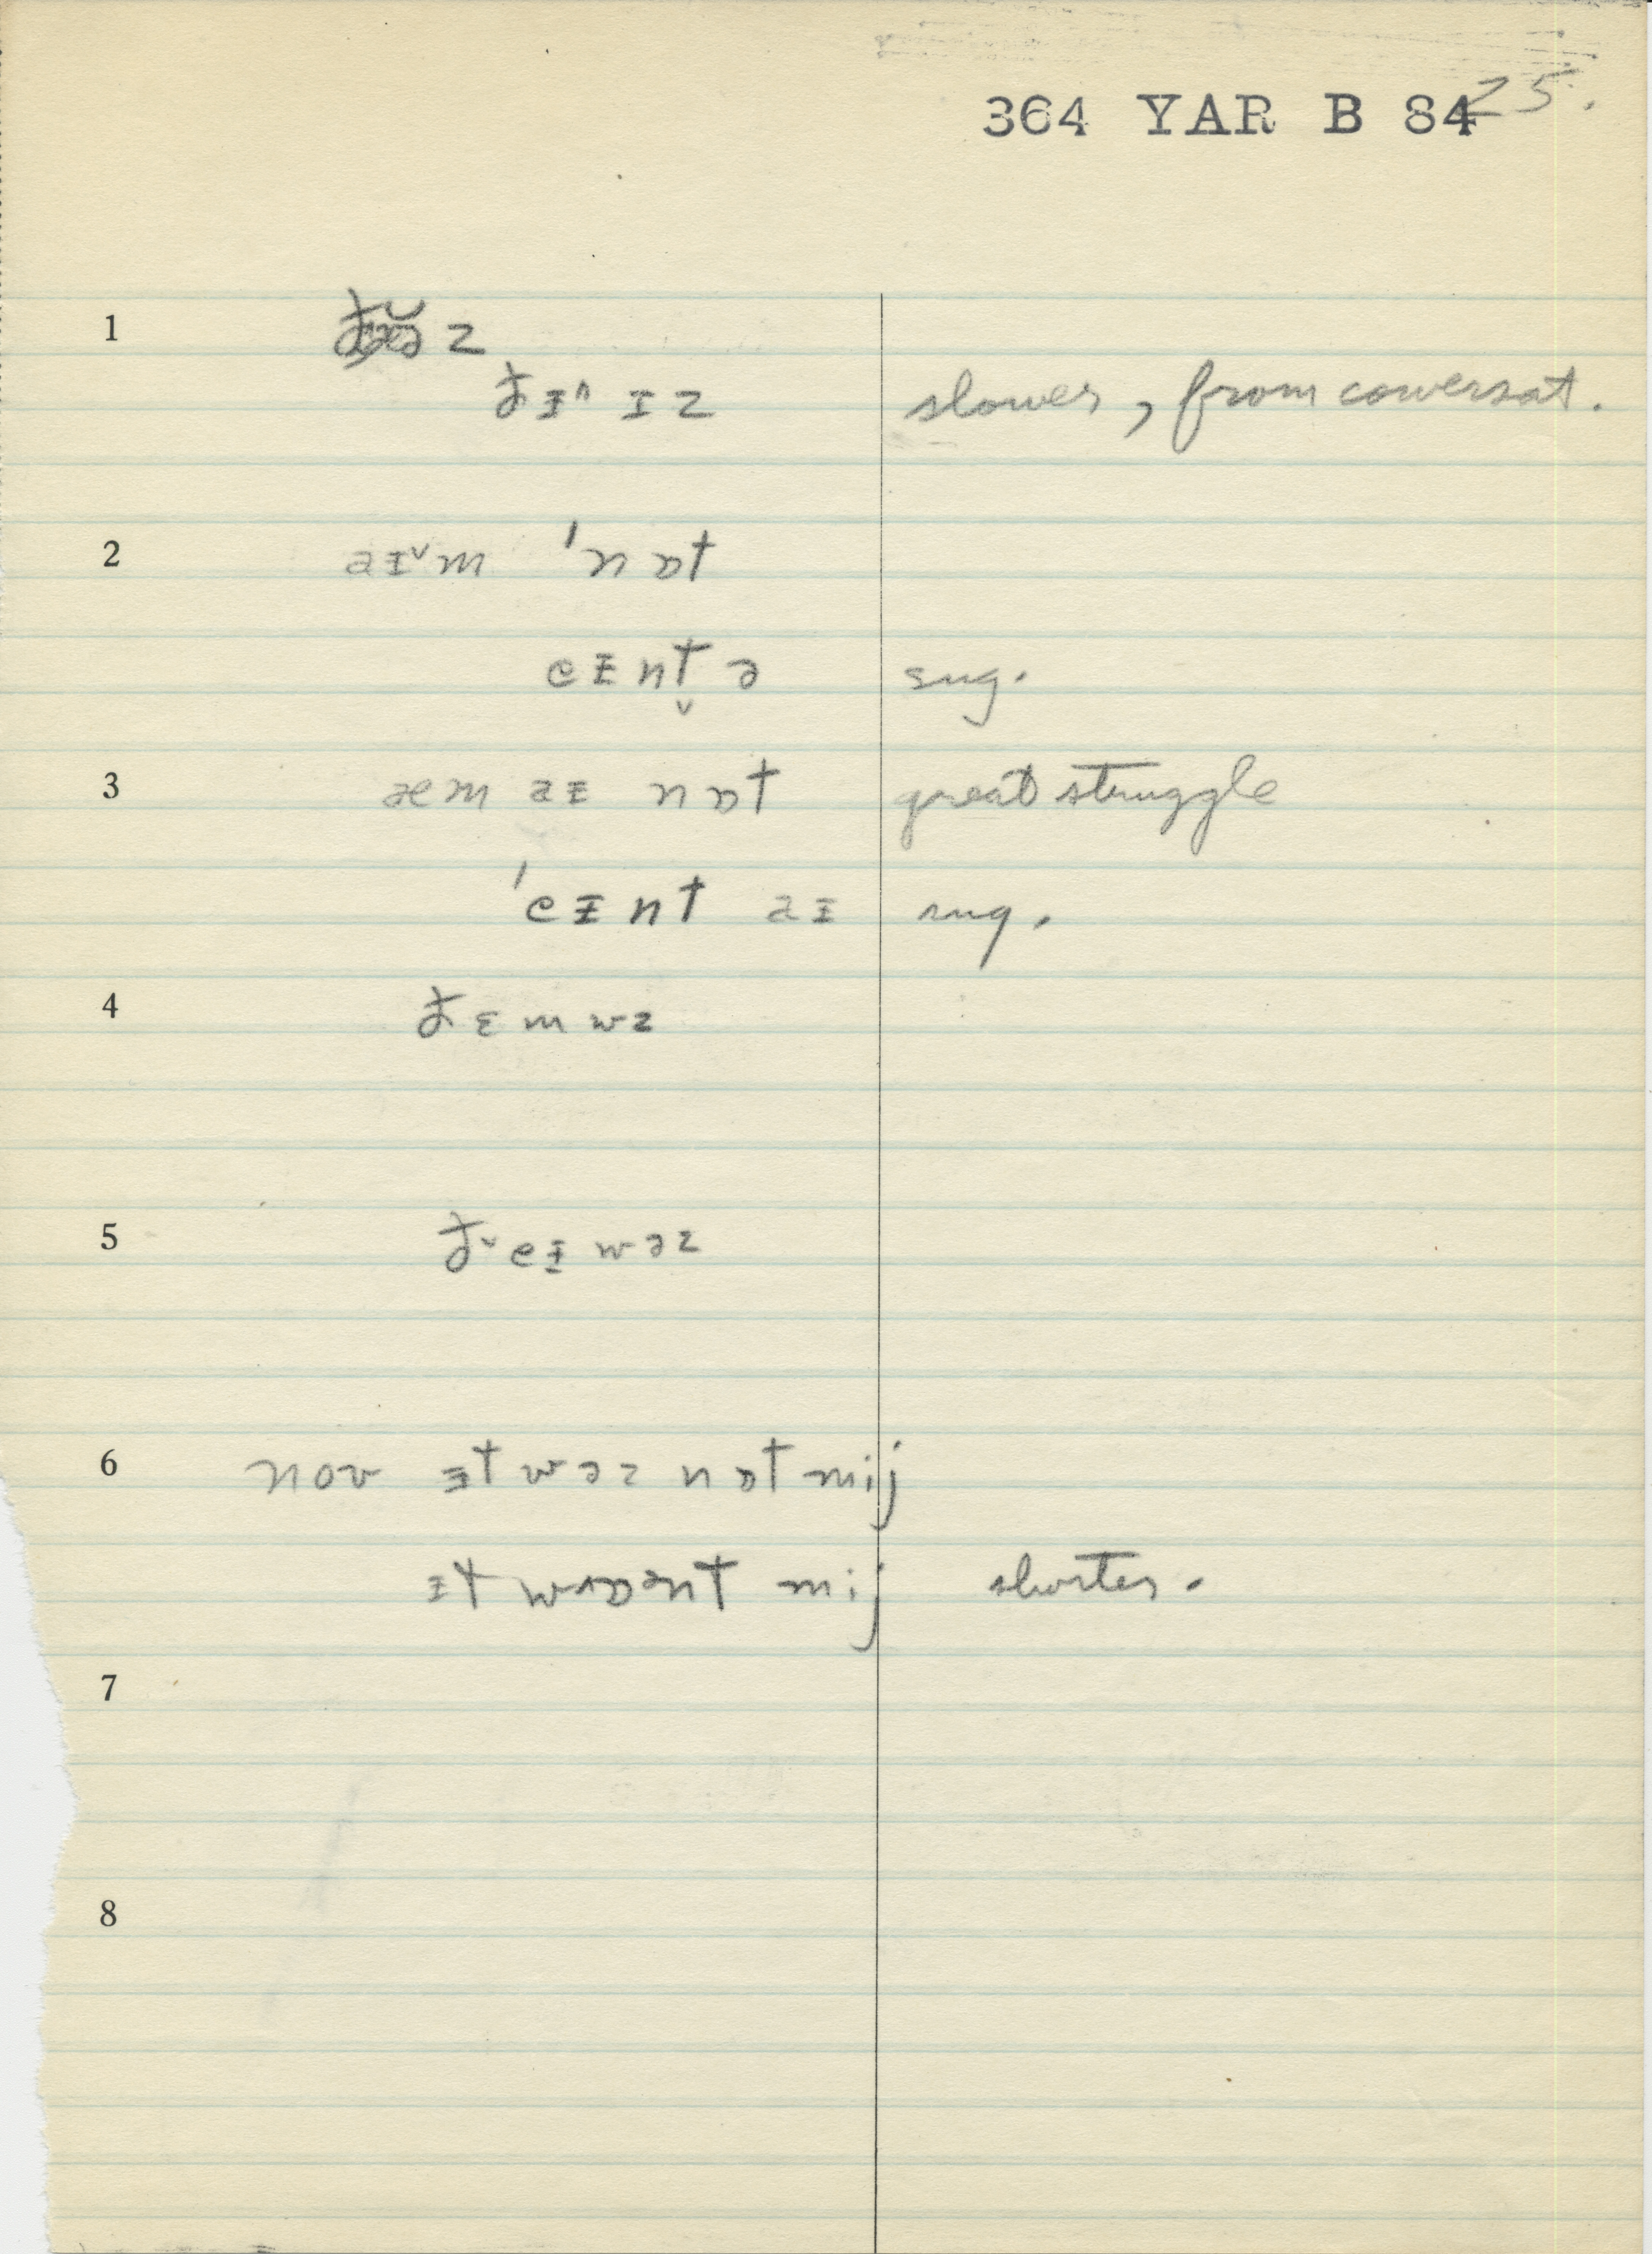 364 YAR B 84 25.
1 z
ðɪⁿ ɪz slower, from conversat.
2 aɪ˅m 'nɒt
eɪnt̬ə sug.
3 æm aɪ nɒt great struggle
'eɪnt aɪ sug.
4 ðɛm wz
5 ð˅eɪ wəz
6 noʊ ɪt wəz nɒt mij
ɪt wʌɒənt mij shorter.
7
8